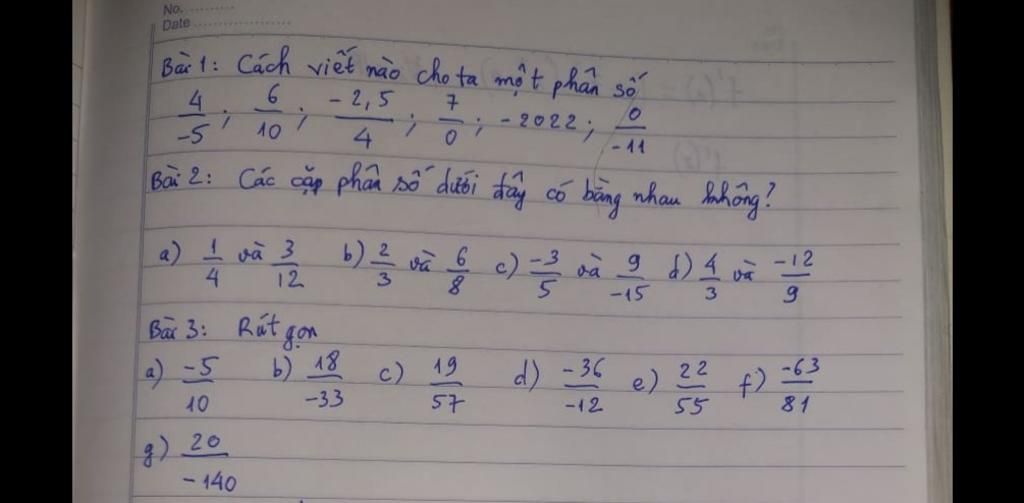 No. ..........
Date ....................
Bài 1: Cách viết nào cho ta một phân số
4/-5 ; 6/10 ; -2,5/4 ; 7/0 ; -2022 ; 0/-11
Bài 2: Các cặp phân số dưới đây có bằng nhau không?
a) 1/4 và 3/12 b) 2/3 và 6/8 c) -3/5 và 9/-15 d) 4/3 và -12/9
Bài 3: Rút gọn
a) -5/10 b) 18/-33 c) 19/57 d) -36/-12 e) 22/55 f) -63/81
g) 20/-140